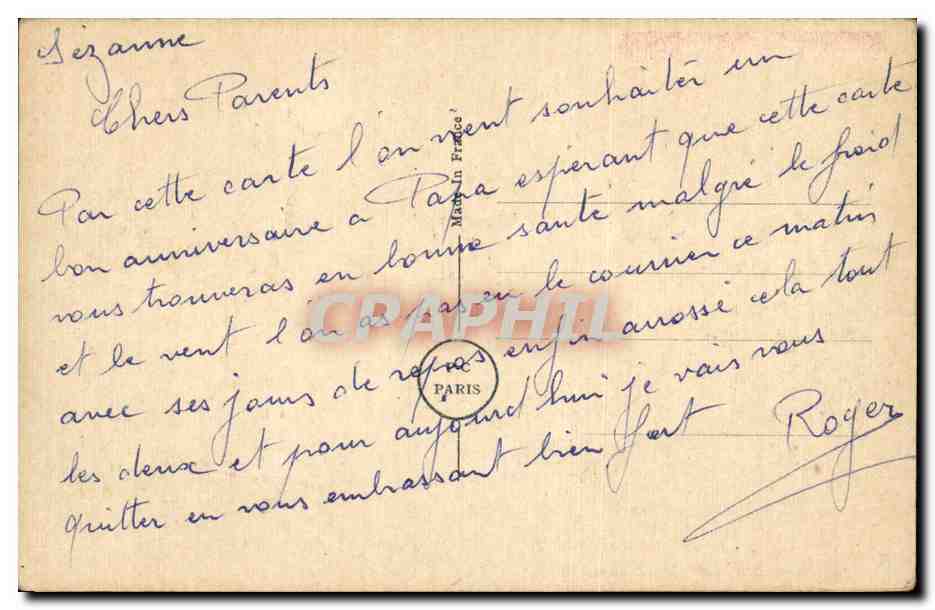 Sézanne
Chers Parents
Par cette carte l'on vient souhaiter un
bon anniversaire a Papa espérant que cette carte
vous trouveras en bonne santé malgré le froid
et le vent l'on as pas eu le courrier ce matin
avec ses jours de repos enfin arrossé cela tout
les deux et pour aujourd'hui je vais vous
quitter en vous embrassant bien fort
Roger
Made in France
PARIS
CRAPHIL